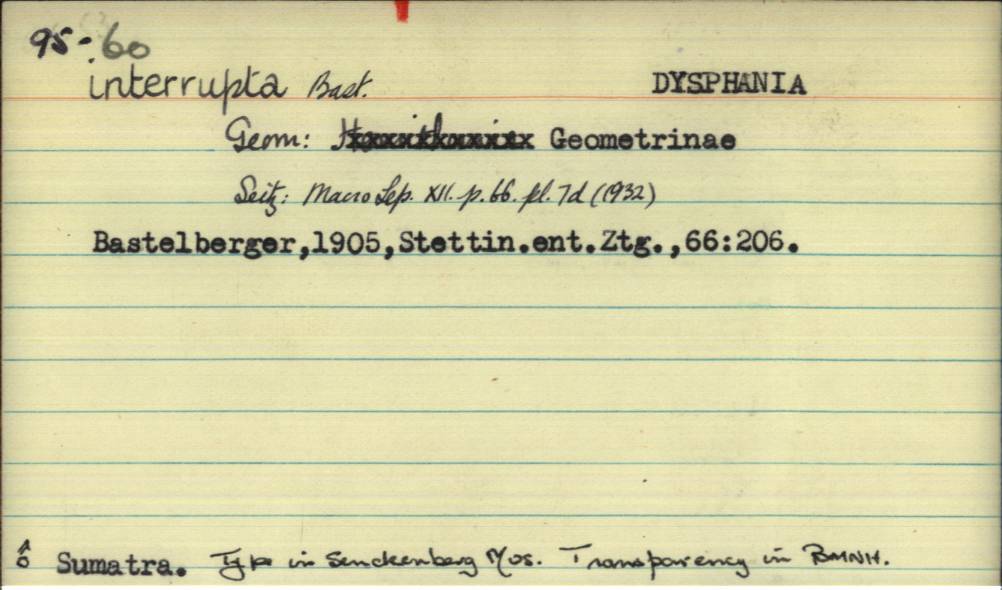 95-60
interrupta Bast. DYSPHANIA
Geom: Geometrinae
Seitz: Macro Lep. XII. p.66. pl. 7d (1932)
Bastelberger,1905,Stettin.ent.Ztg.,66:206.
♂ Sumatra. Type in Senckenberg Mus. Transparency in BMNH.